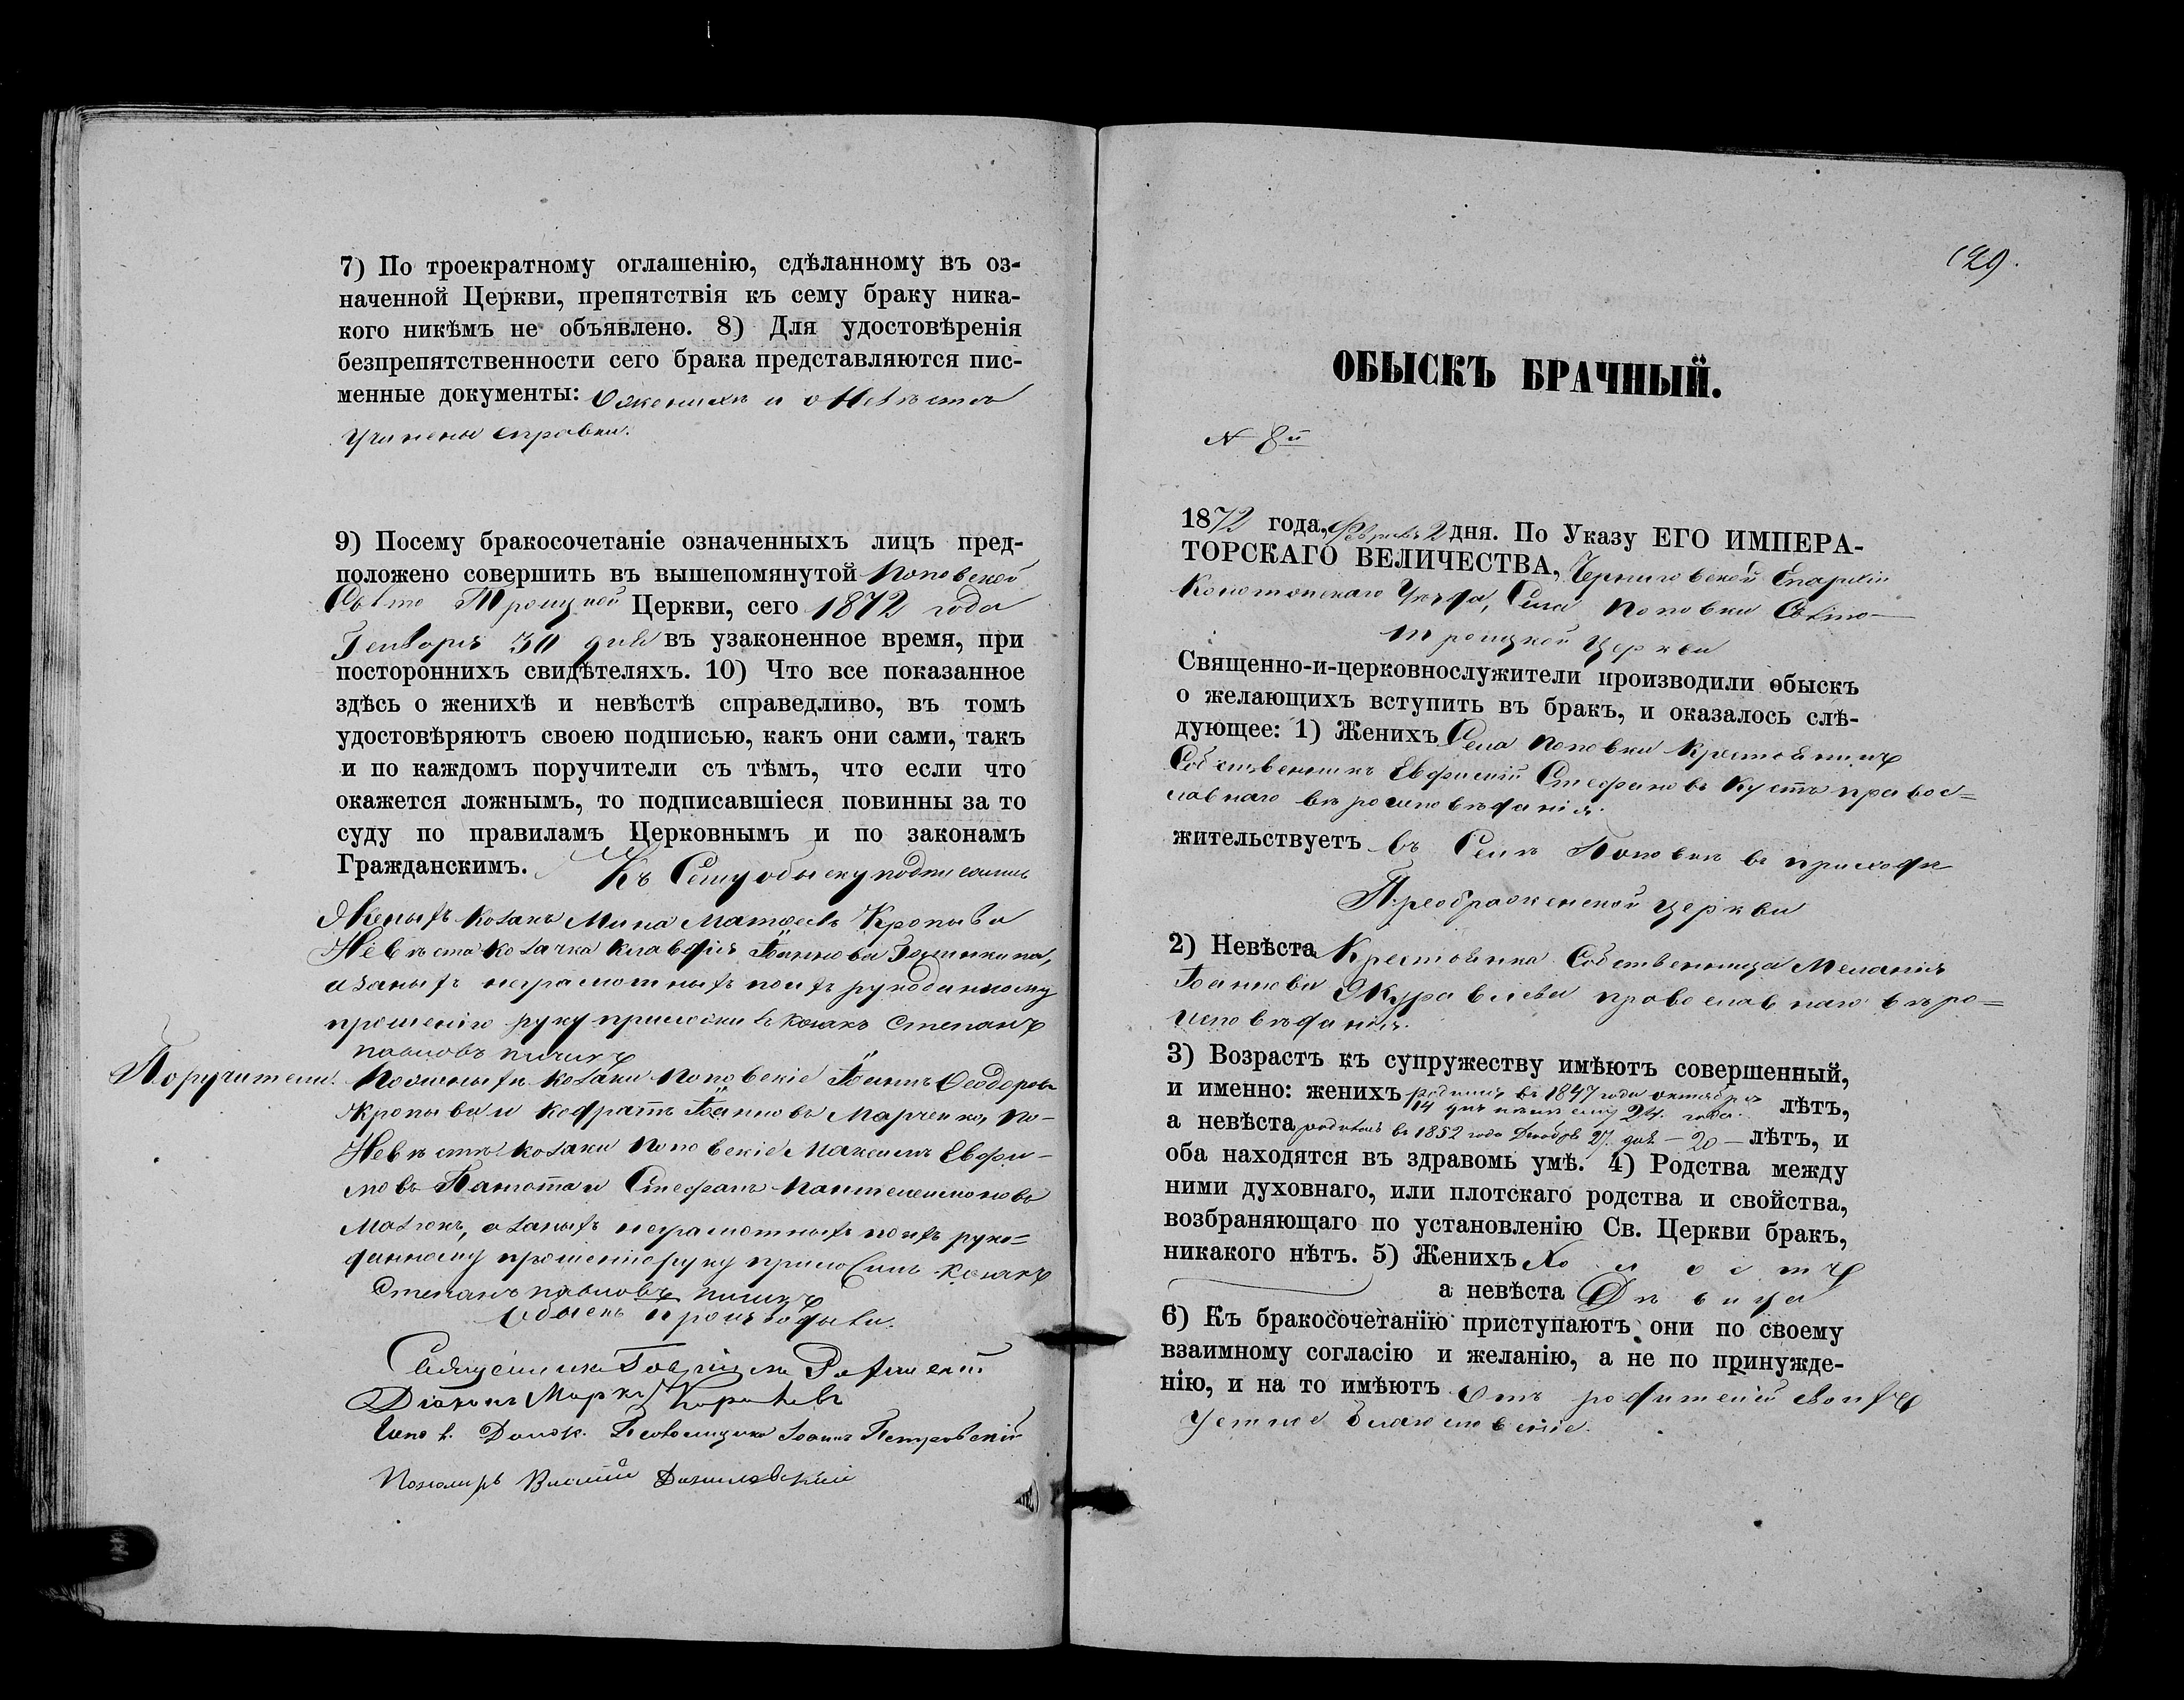 7) По троекратному оглашенію, сдѣланному въ оз-
наченной Церкви, препятствія къ сему браку ника-
кого никѣмъ не объявлено. 8) Для удостовѣренія
безпрепятственности сего брака представляются пис-
менные документы: О женихѣ и о Невѣстѣ
учинены справки.
9) Посему бракосочетаніе означенныхъ лицъ пред-
положено совершить въ вышепомянутой Поповской
Свято Троицкой Церкви, сего 1872 года
Генваря 30 дня въ узаконенное время, при
постороннихъ свидѣтеляхъ. 10) Что все показанное
здѣсь о женихѣ и невѣстѣ справедливо, въ томъ
удостовѣряютъ своею подписью, какъ они сами, такъ
и по каждомъ поручители съ тѣмъ, что если что
окажется ложнымъ, то подписавшіеся повинны за то
суду по правиламъ Церковнымъ и по законамъ
Гражданскимъ. Къ Сему обыску подписались
Женихъ козакъ Мина Матѳеевъ Кропыва
Невѣста козачка Клавдія Іоаннова
а за нихъ неграмотныхъ по ихъ рукоданному
прошенію руку приложилъ козакъ Степанъ
Павловъ
Поручители: По женихѣ козаки Поповскіе Іоаннъ Ѳеодоровъ
Кропыва и Кодратъ Іоанновъ Марченко, по
Невѣстѣ козаки Поповскіе Максимъ Евфи-
мовъ и Стефанъ Пантелеимоновъ
а за нихъ неграмотныхъ по ихъ руко-
данному прошенію руку приложилъ козакъ
Степанъ Павловъ
Обыскъ производили:
Священникъ
Діаконъ Маркъ
Іоаннъ Петровскій
Пономарь Даниловскій
129.
ОБЫСКЪ БРАЧНЫЙ.
N 8й
1872 года, Февраля 2 дня. По Указу ЕГО ИМПЕРА-
ТОРСКАГО ВЕЛИЧЕСТВА, Черниговской Епархіи
Конотопскаго Уѣзда, Села Поповки Свято-
Троицкой Церкви
Священно-и-церковнослужители производили обыскъ
о желающихъ вступить въ бракъ, и оказалось слѣ-
дующее: 1) Женихъ Села Поповки Крестьянинъ
Собственникъ Евфимій Стефановъ Кустъ правос-
лавнаго вѣроисповѣданія.
жительствуетъ въ Селѣ Поповкѣ въ приходѣ
Преображенской церкви
2) Невѣста Крестьянка Собственница Меланія
Іоаннова Журавлева православнаго вѣро-
исповѣданія.
3) Возрастъ къ супружеству имѣютъ совершенный,
и именно: женихъ родился въ 1847 года октября
14 дня 24. года. лѣтъ,
а невѣста родилась въ 1852 года Декабря 27. дня - 20 - лѣтъ, и
оба находятся въ здравомъ умѣ. 4) Родства между
ними духовнаго, или плотскаго родства и свойства,
возбраняющаго по установленію Св. Церкви бракъ,
никакого нѣтъ. 5) Женихъ Холостъ
а невѣста Дѣвица
6) Къ бракосочетанію приступаютъ они по своему
взаимному согласію и желанію, а не по принужде-
нію, и на то имѣютъ Отъ родителей своихъ
устное благословеніе.